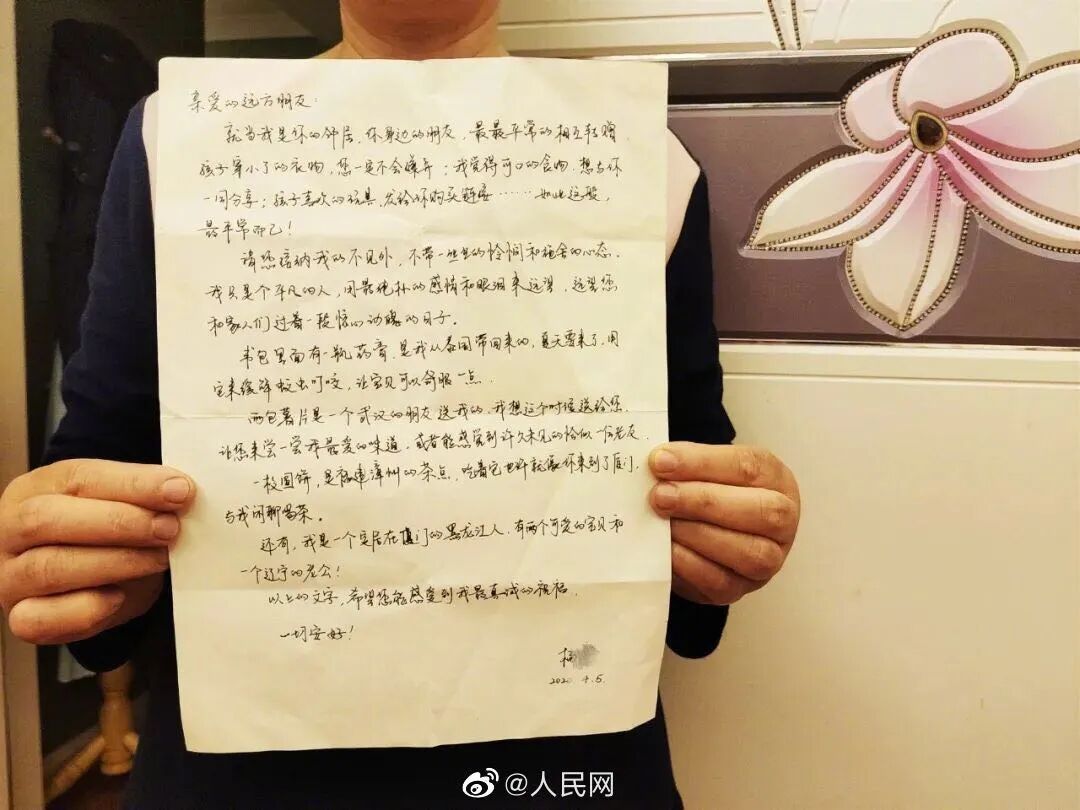 亲爱的远方朋友:
就当我是你的邻居,你身边的朋友,最最平常的相互转赠,
孩子穿小了的衣物,您一定不会嫌弃;我觉得可口的食物,想与你
一同分享;孩子喜欢的玩具,发给你购买链接……如此这般,
最平常而已!
请您接纳我的不见外,不带一丝的怜悯和施舍的心态。
我只是个平凡的人,用最纯朴的感情和眼泪来远望,远望您
和家人们过着一段惊心动魄的日子。
书包里面有一瓶药膏,是我从泰国带回来的,夏天要来了,用
它来缓解蚊虫叮咬,让宝贝可以舒服一点。
两包薯片是一个武汉的朋友送我的,我想这个时候送给您,
让您来尝一尝我最爱的味道,或者能感觉到许久未见的恰似一位老友。
一枚圆饼,是福建漳州的茶点,吃着它也许就像你来到了厦门,
与我闲聊喝茶。
还有,我是一个定居在厦门的黑龙江人,有两个可爱的宝贝和
一个辽宁的老公!
以上的文字,希望您能感受到我最真诚的祝福。
一切安好!
杨
2020.4.5.
@人民网